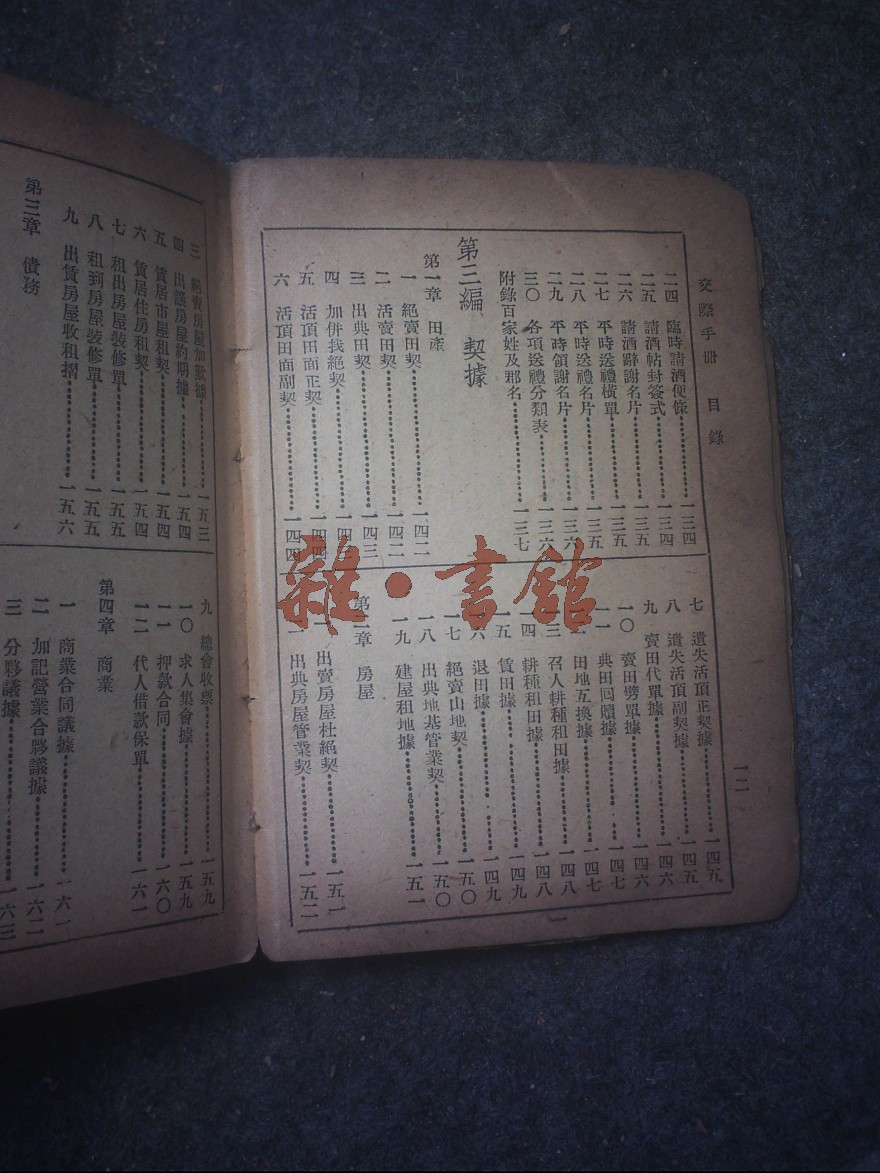 交際手冊 目錄
一二
二四 臨時請酒便條 一三四
二五 請酒帖封簽式 一三四
二六 請酒辭謝名片 一三五
二七 平時送禮橫單 一三五
二八 平時送禮名片 一三五
二九 平時領謝名片 一三六
三〇 各項送禮分類表 一三六
附錄百家姓及郡名 一三七
第三編 契據
第一章 田產
一 絕賣田契 一四二
二 活賣田契 一四二
三 出典田契 一四三
四 加併找絕契 一四三
五 活頂田面正契 一四四
六 活頂田面副契 一四四
七 遺失活頂正契據 一四五
八 遺失活頂副契據 一四五
九 賣田代單據 一四六
一〇 賣田劈單據 一四六
一一 典田囘贖據 一四七
一二 田地互換據 一四七
一三 召人耕種租田據 一四八
一四 耕種租田據 一四八
一五 賃田據 一四九
一六 退田據 一四九
一七 絕賣山地契 一五〇
一八 出典地基管業契 一五〇
一九 建屋租地據 一五一
第二章 房屋
一 出賣房屋杜絕契 一五一
二 出典房屋管業契 一五二
三 絕賣房屋加歎據 一五三
四 出讓房屋約期據 一五四
五 賃居市屋租契 一五四
六 賃居住房租契 一五四
七 租出房屋裝修單 一五五
八 租到房屋裝修單 一五五
九 出賃房屋收租摺 一五六
第三章 債務
九 總會收票 一五九
一〇 求人集會據 一五九
一一 押款合同 一六〇
一二 代人借款保單 一六一
第四章 商業
一 商業合同議據 一六一
二 加記營業合夥議據 一六二
三 分夥議據 一六三
雜·書館